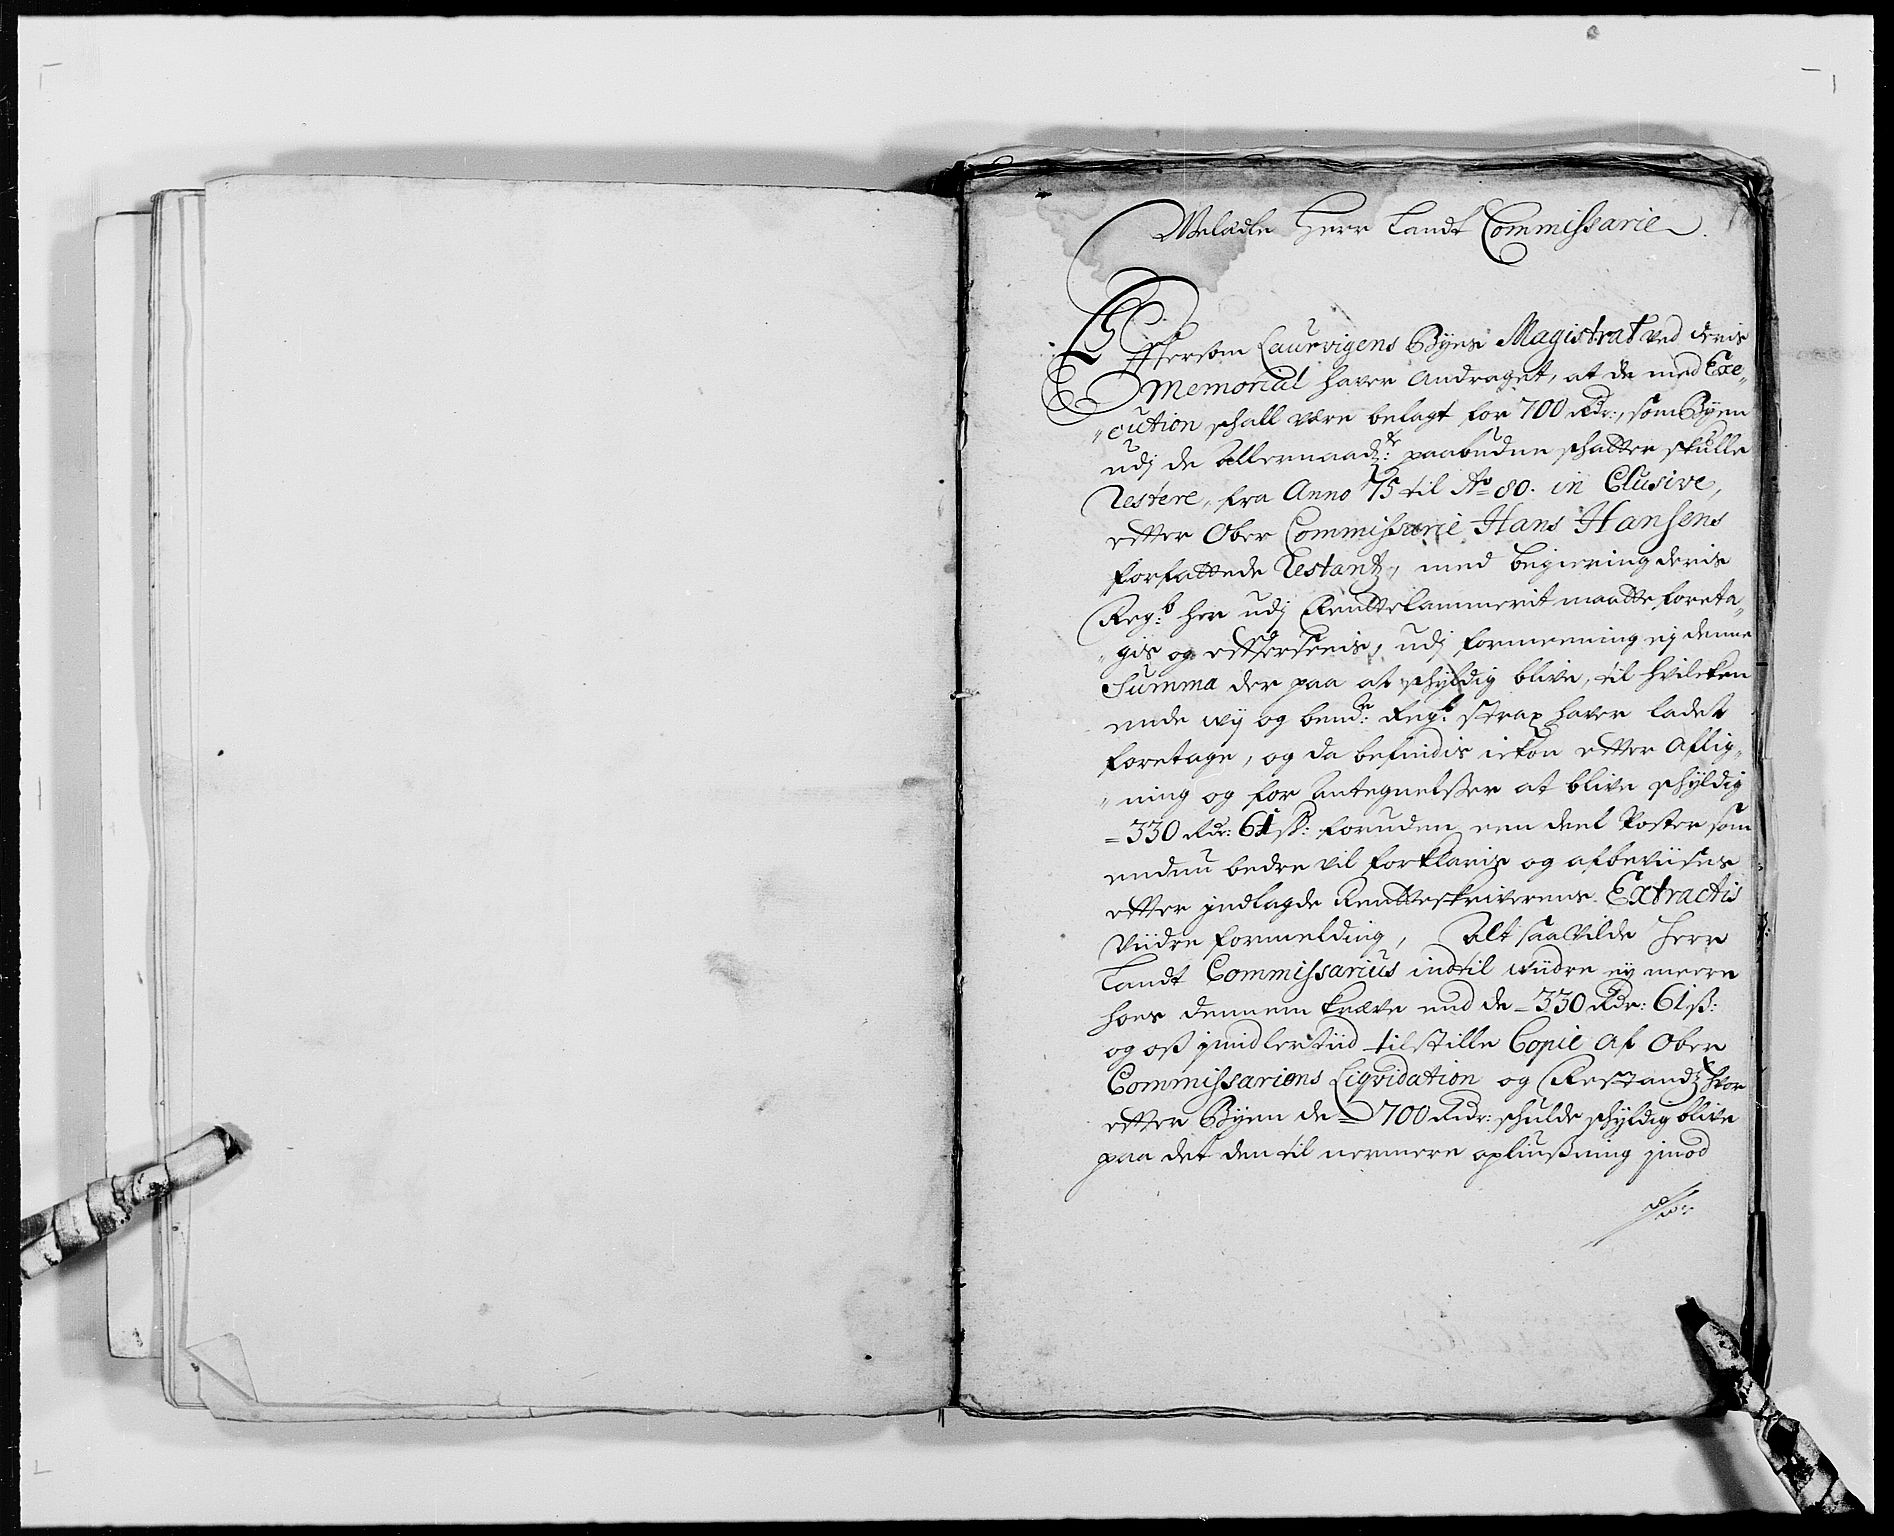 Velædle Herr Landt Commissarie.
Efftersom Laurvigens Byes Magistrat ved deris
Memorial hafver andraget, at de med Exe„
„cution schall være belagt for 700 Rdr:, som Byen
udj de allernaad: paabudne schatter skulle
Restere, fra Anno 75 til Ao 80. in Clusive,
efter Ober Commissarie Hans Hansens
forfattede Restantz, med begiering deris
Regb: her udj Renttekammerit maatte foreta„
„gis og efftersees, udj formeening ej denne
Summa der paa at schyldig blive, til hvilcken
ende wij og bemd: Regb: strax hafver ladet
foretage, og da befindis ickon efter aflig„
„ning og for Antegnelsser at blive schyldig
= 330 Rdr: 61 ß: foruden een deel Poster som
endnu bedre vil forklaris og afbeviises
efter jndlagde Rentteskriverens Extractis
viidre formelding, Alt saa vilde Herr
Landt Commissarius indtil viidre ej meere
hoes dennem kræve end de = 330 Rdr: 61 ß:
og oß jmidlertiid tilstille Copie af Ober
Commissariens Liqvidation og Restandtz hvor
efter Byen de = 700 Rdr: schulde schyldig blive
paa det den til nermere opliußning jmod